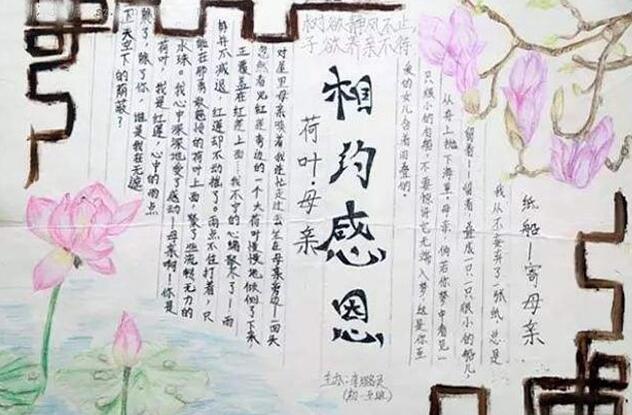 树欲静风不止,
子欲养亲不得
纸船—寄母亲
我从不妄弃了一张纸,总是
留着—留着,叠成一只一只很小的船儿,
从舟上抛下海里。母亲,倘若你梦中看见一
只很小的白船,不要惊讶它无端入梦。这是你至
爱的女儿含着泪叠的。
相约感恩
荷叶·母亲
对屋里母亲唤着我连忙走过去坐在母亲旁边—回头
忽然看见红莲旁边的一个大荷叶慢慢地倾侧了下来,
正覆盖在红莲上面……我不宁的心绪散尽了!雨
势并不减退,红莲却不动摇了。雨点不住打着,只
能在那勇敢慈怜的荷叶上面,聚了些流转无力的
水珠。我心中深深地受了感动—母亲啊!你是
荷叶,我是红莲,心中的雨点
来了,除了你,谁是我在无遮
天空下的荫蔽?
主办: